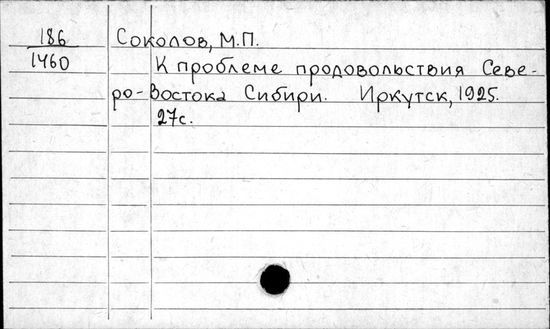 186 Соколов, М.П.
1460 К проблеме продовольствия Севе-
ро-Востока Сибири. Иркутск, 1925.
27с.